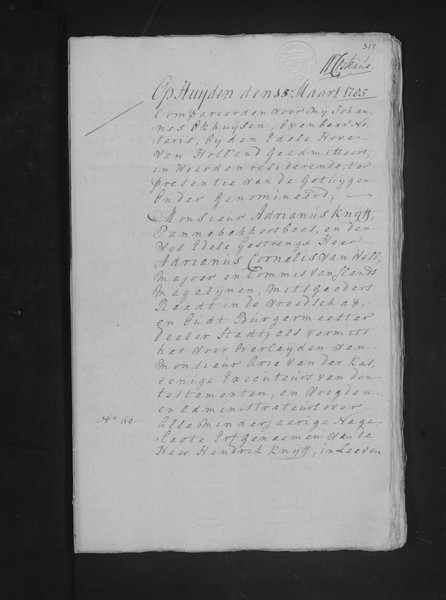 317
Op Huyden den 15: Maart 1785
Compareerden voor my Johan,
nes Okhuysen, Openbaar No,
taris, by den Edele Hove
van Holland Geadmitteert,
in Woerden resideerende, ter
presentie van de Getuygen
onder Genomineerd;
Monsieur Adrianus Knyff,
Pannebakkersbaas, en den
Wel Edele Gestrenge Heer
Adrianus Cornelis van Well,
Majoor en Commis van 's Lands
Magazynen, mitsgaders
Raadt in de Vroedschap,
en Oudt Burgermeester
deeser Stadt, als vermits
het voor Overlyden van
Monsieur Arie van der Kas,
eenige Executeurs van den
testamenten, en Voogden
en administrateurs over
alle minderjaarige Nage,
No. 40.
laate Erfgenaemen van de
Heer Hendrik Knyff, in Leeven